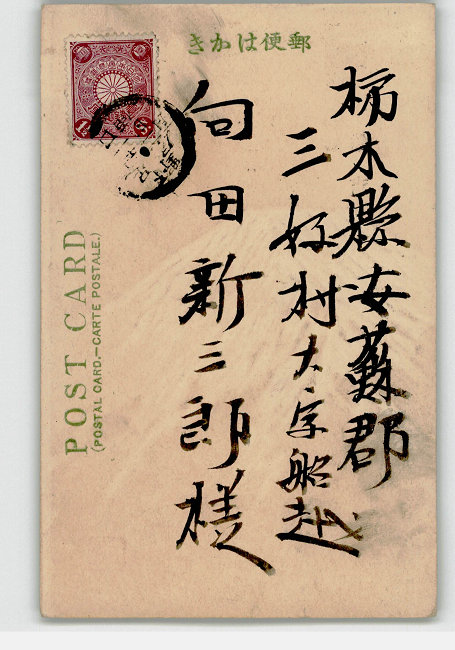 郵便はかき
栃木縣安蘇郡
三好村大字船越
向田新三郎様
POST CARD
(POSTAL CARD.—CARTE POSTALE.)